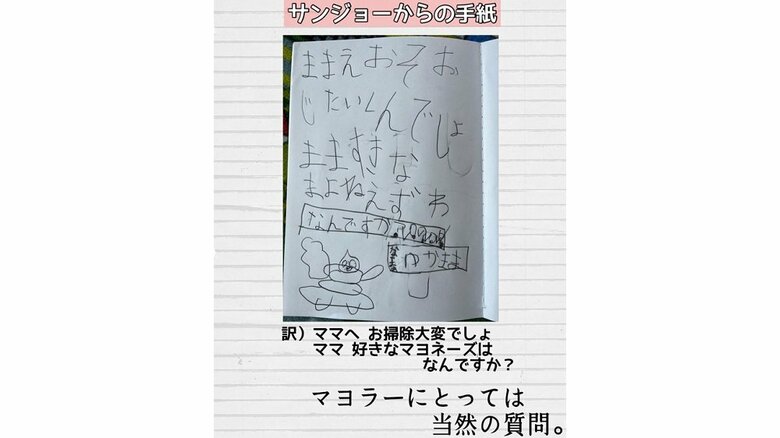 サンジョーからの手紙
ままえおそお
じたいくんでしょ
ままずきな
まよねえずわ
なんですか
ゆかまま
訳）ママへ お掃除大変でしょ
ママ 好きなマヨネーズは
なんですか？
マヨラーにとっては
当然の質問。